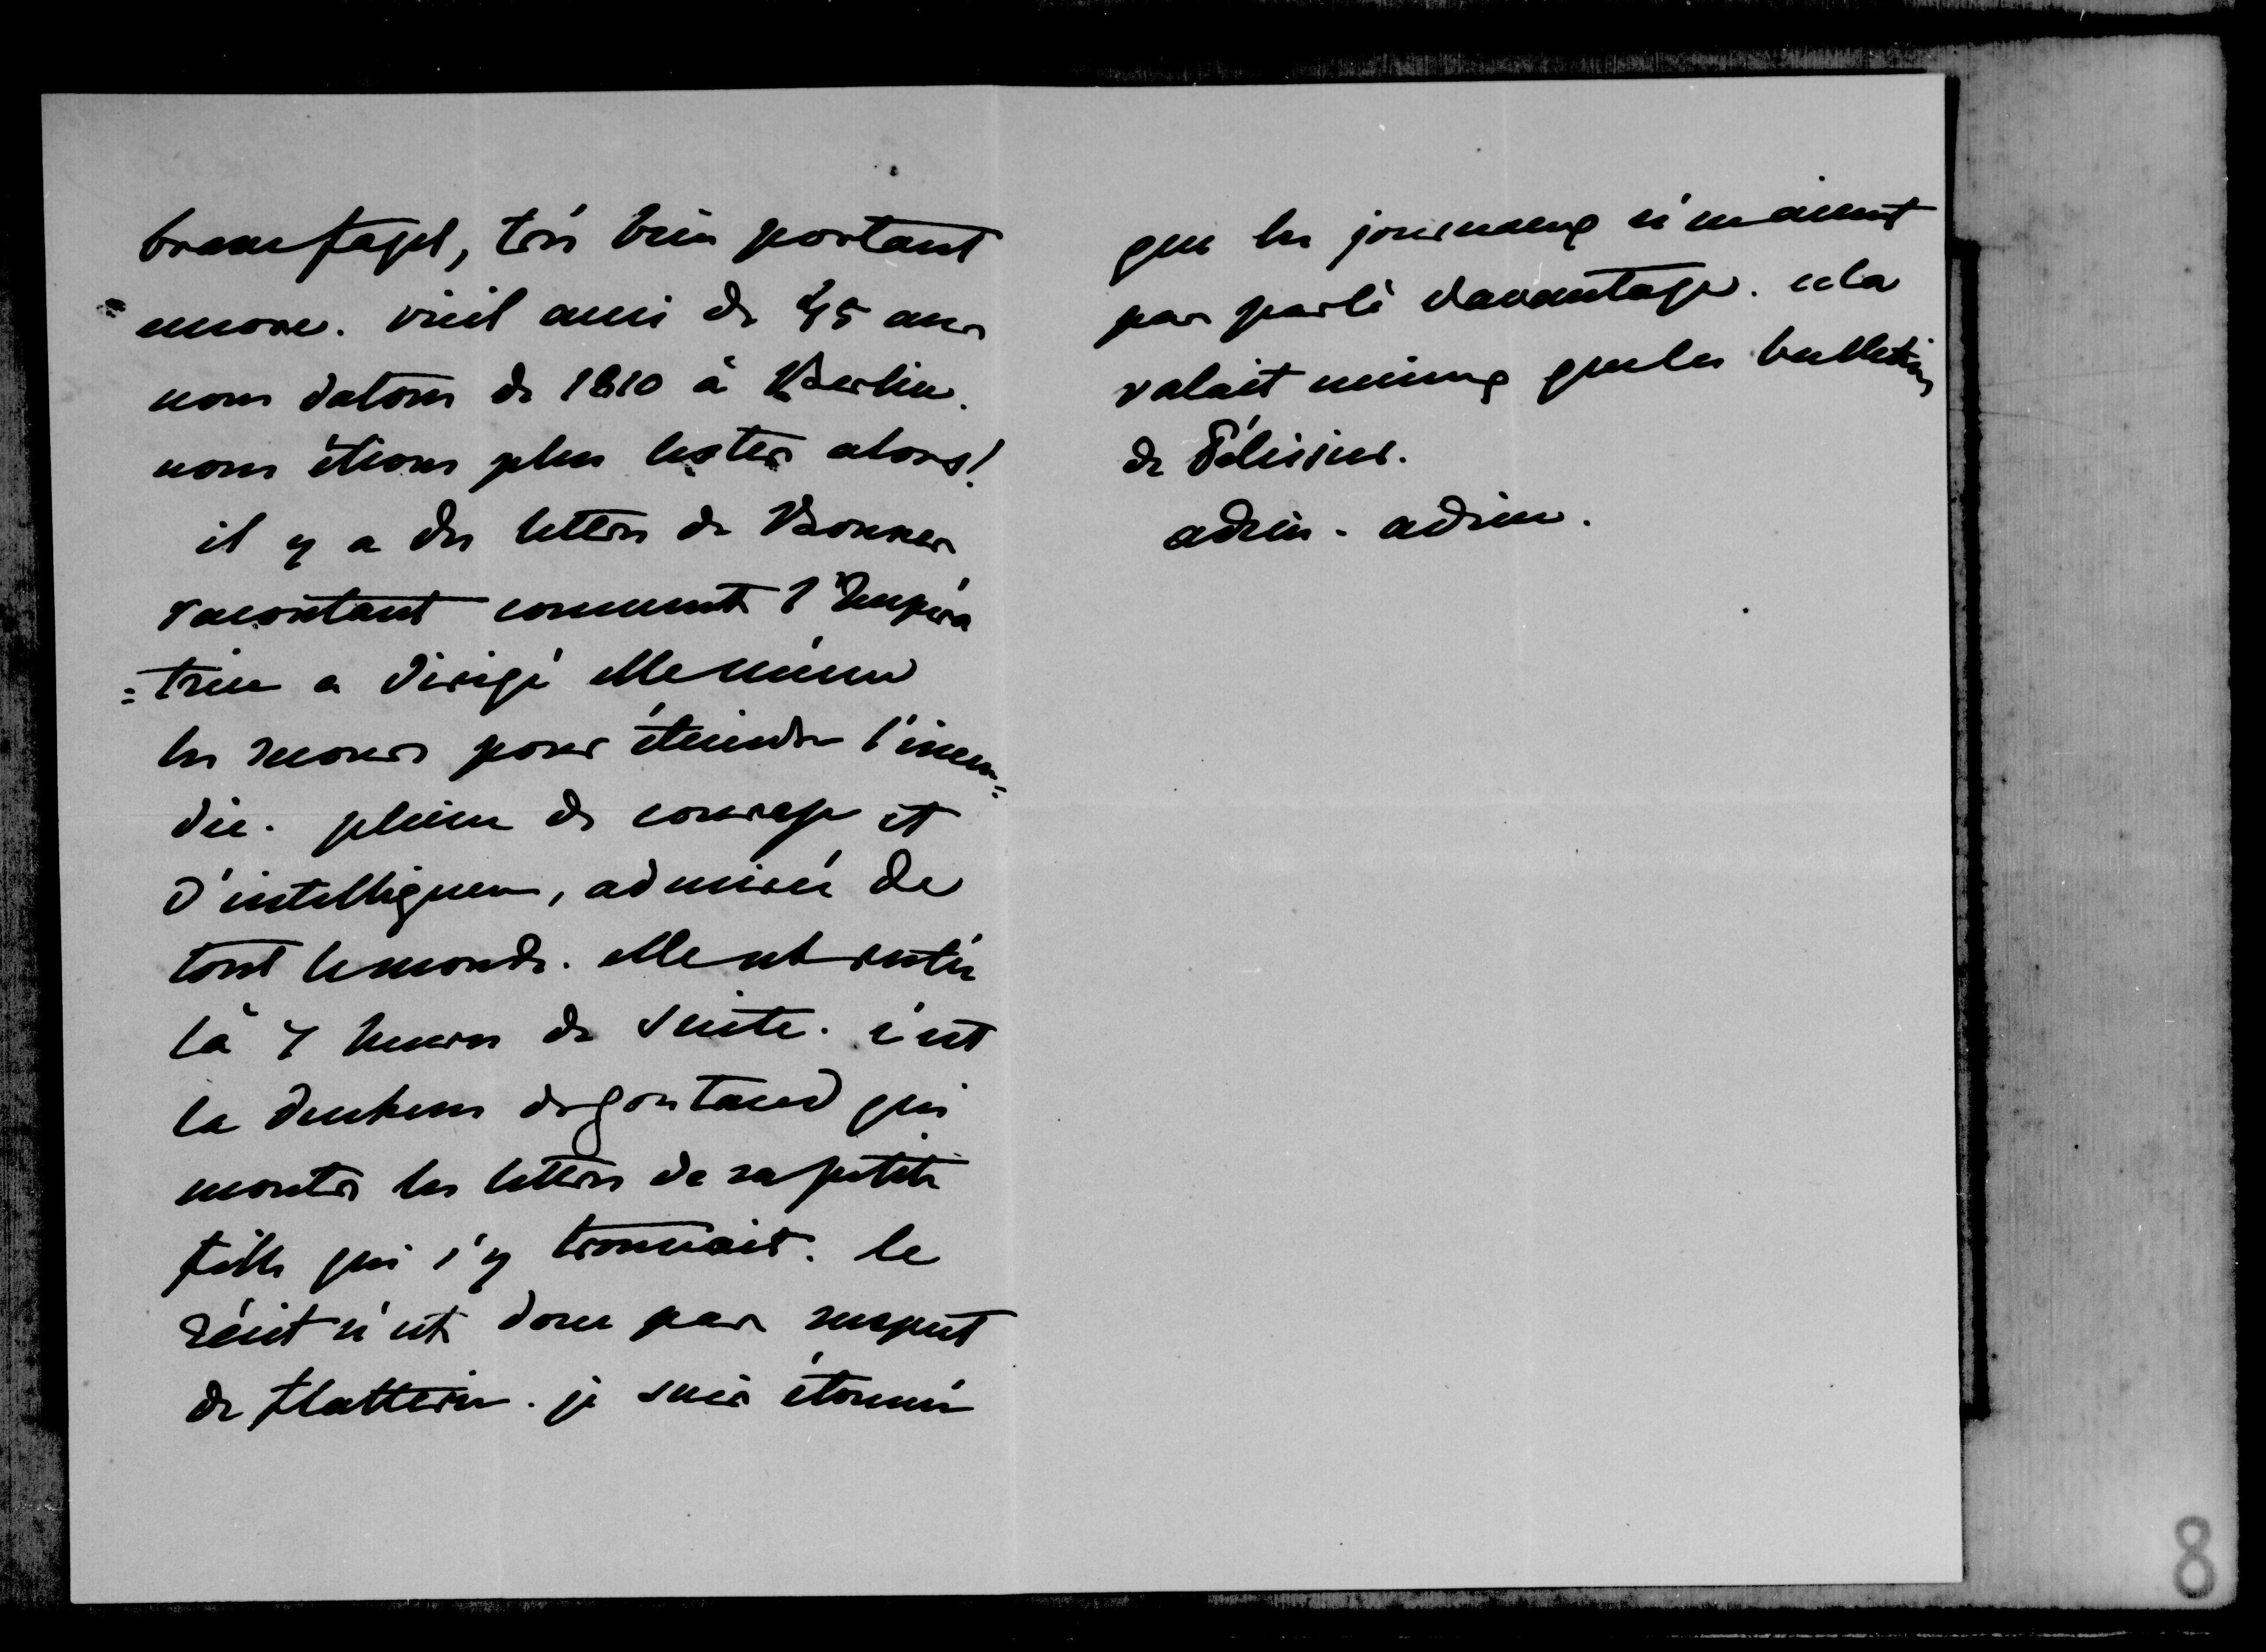 brave Fagel, très bien portant
encore. vieil ami de 45 ans
nous datons de 1810 à Berlin.
nous étions plus lestes alors!
il y a des lettres de Bonnes
racontant comment l'Impéra
=trice a dirigé elle même
les secours pour éteindre l'incen=
die. pleine de courage et
d'intelligence, admirée de
tout le monde. elle est restée
là 7 heures de suite. c'est
la duchesse de Gontaud qui
montre les lettres de sa petite
fille qui s'y trouvait. le
récit n'est donc pas suspect
de flatterie. je suis étonnée
que les journaux n'en aient
pas parlé davantage. cela
valait mieux que les bulletins
de Pélissier.
adieu. adieu.
8